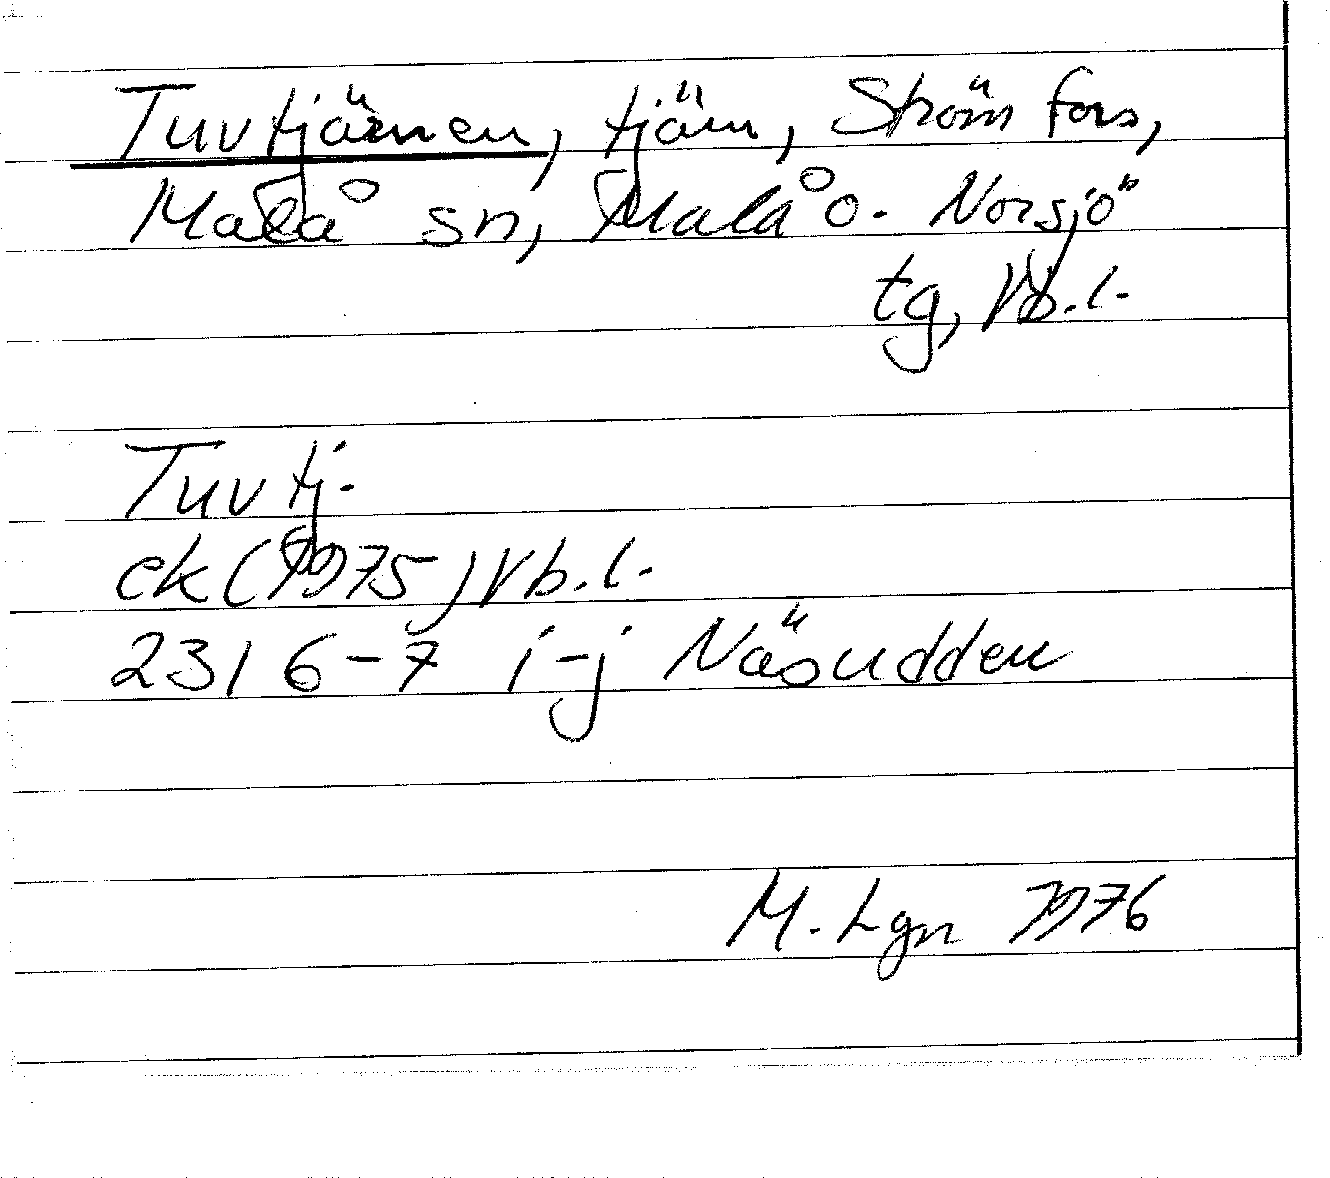 Tuvtjärnen, tjärn, Strömfors,
Malå sn, Malå o. Norsjö
tg, Vb.l.
Tuvtj.
ek (1975) Vb.l.
2316-7 i-j Näsudden
M. Lgn 1976